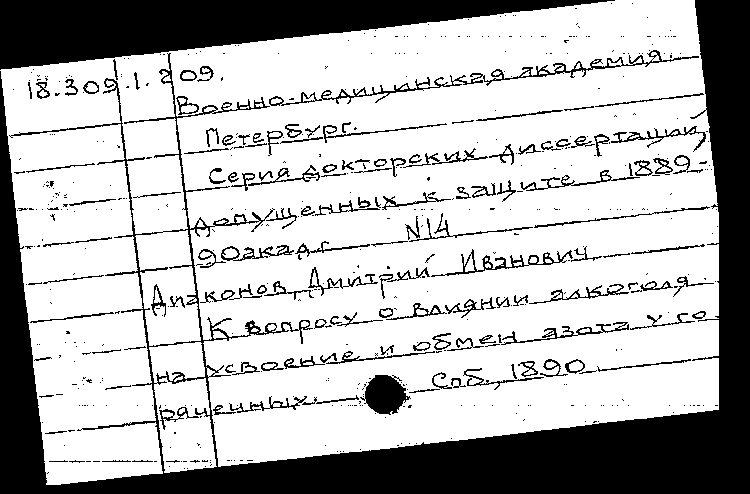 18.309.1.209.
Военно-медицинская академия.
Петербург.
Серия докторских диссертаций,
допущенных к защите в 1889-
90 акад. г. N14
Диаконов, Дмитрий Иванович
К вопросу о влиянии алкоголя
на усвоение и обмен азота у го-
рячечных. Спб., 1890.